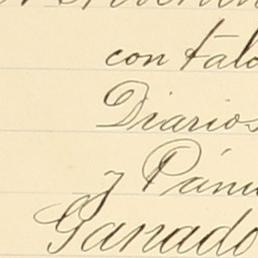 con talo
Diarios
y Pánu
Ganado